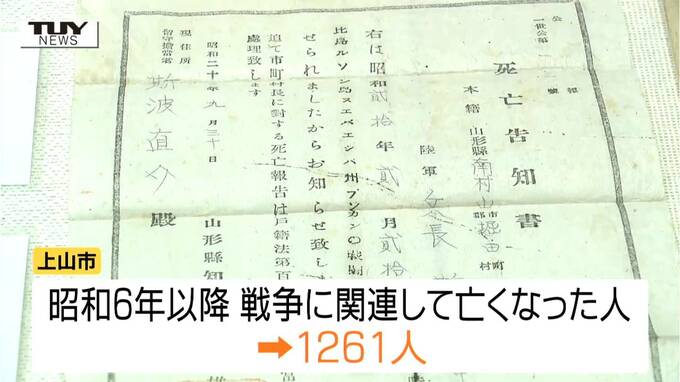 TUY
NEWS
公報
死亡告知書
本籍 山形縣南村山郡堀田村
陸軍 兵長
右は昭和貳拾年貳月貳拾
比島ルソン島
せられましたからお知らせ致し
追て市町村長に對する死亡報告は戶籍法第百
處理致します
昭和二十年九月三十日
山形縣知
現住所
留守擔當者
斯波直
殿
上山市
昭和6年以降 戦争に関連して亡くなった人
➡1261人